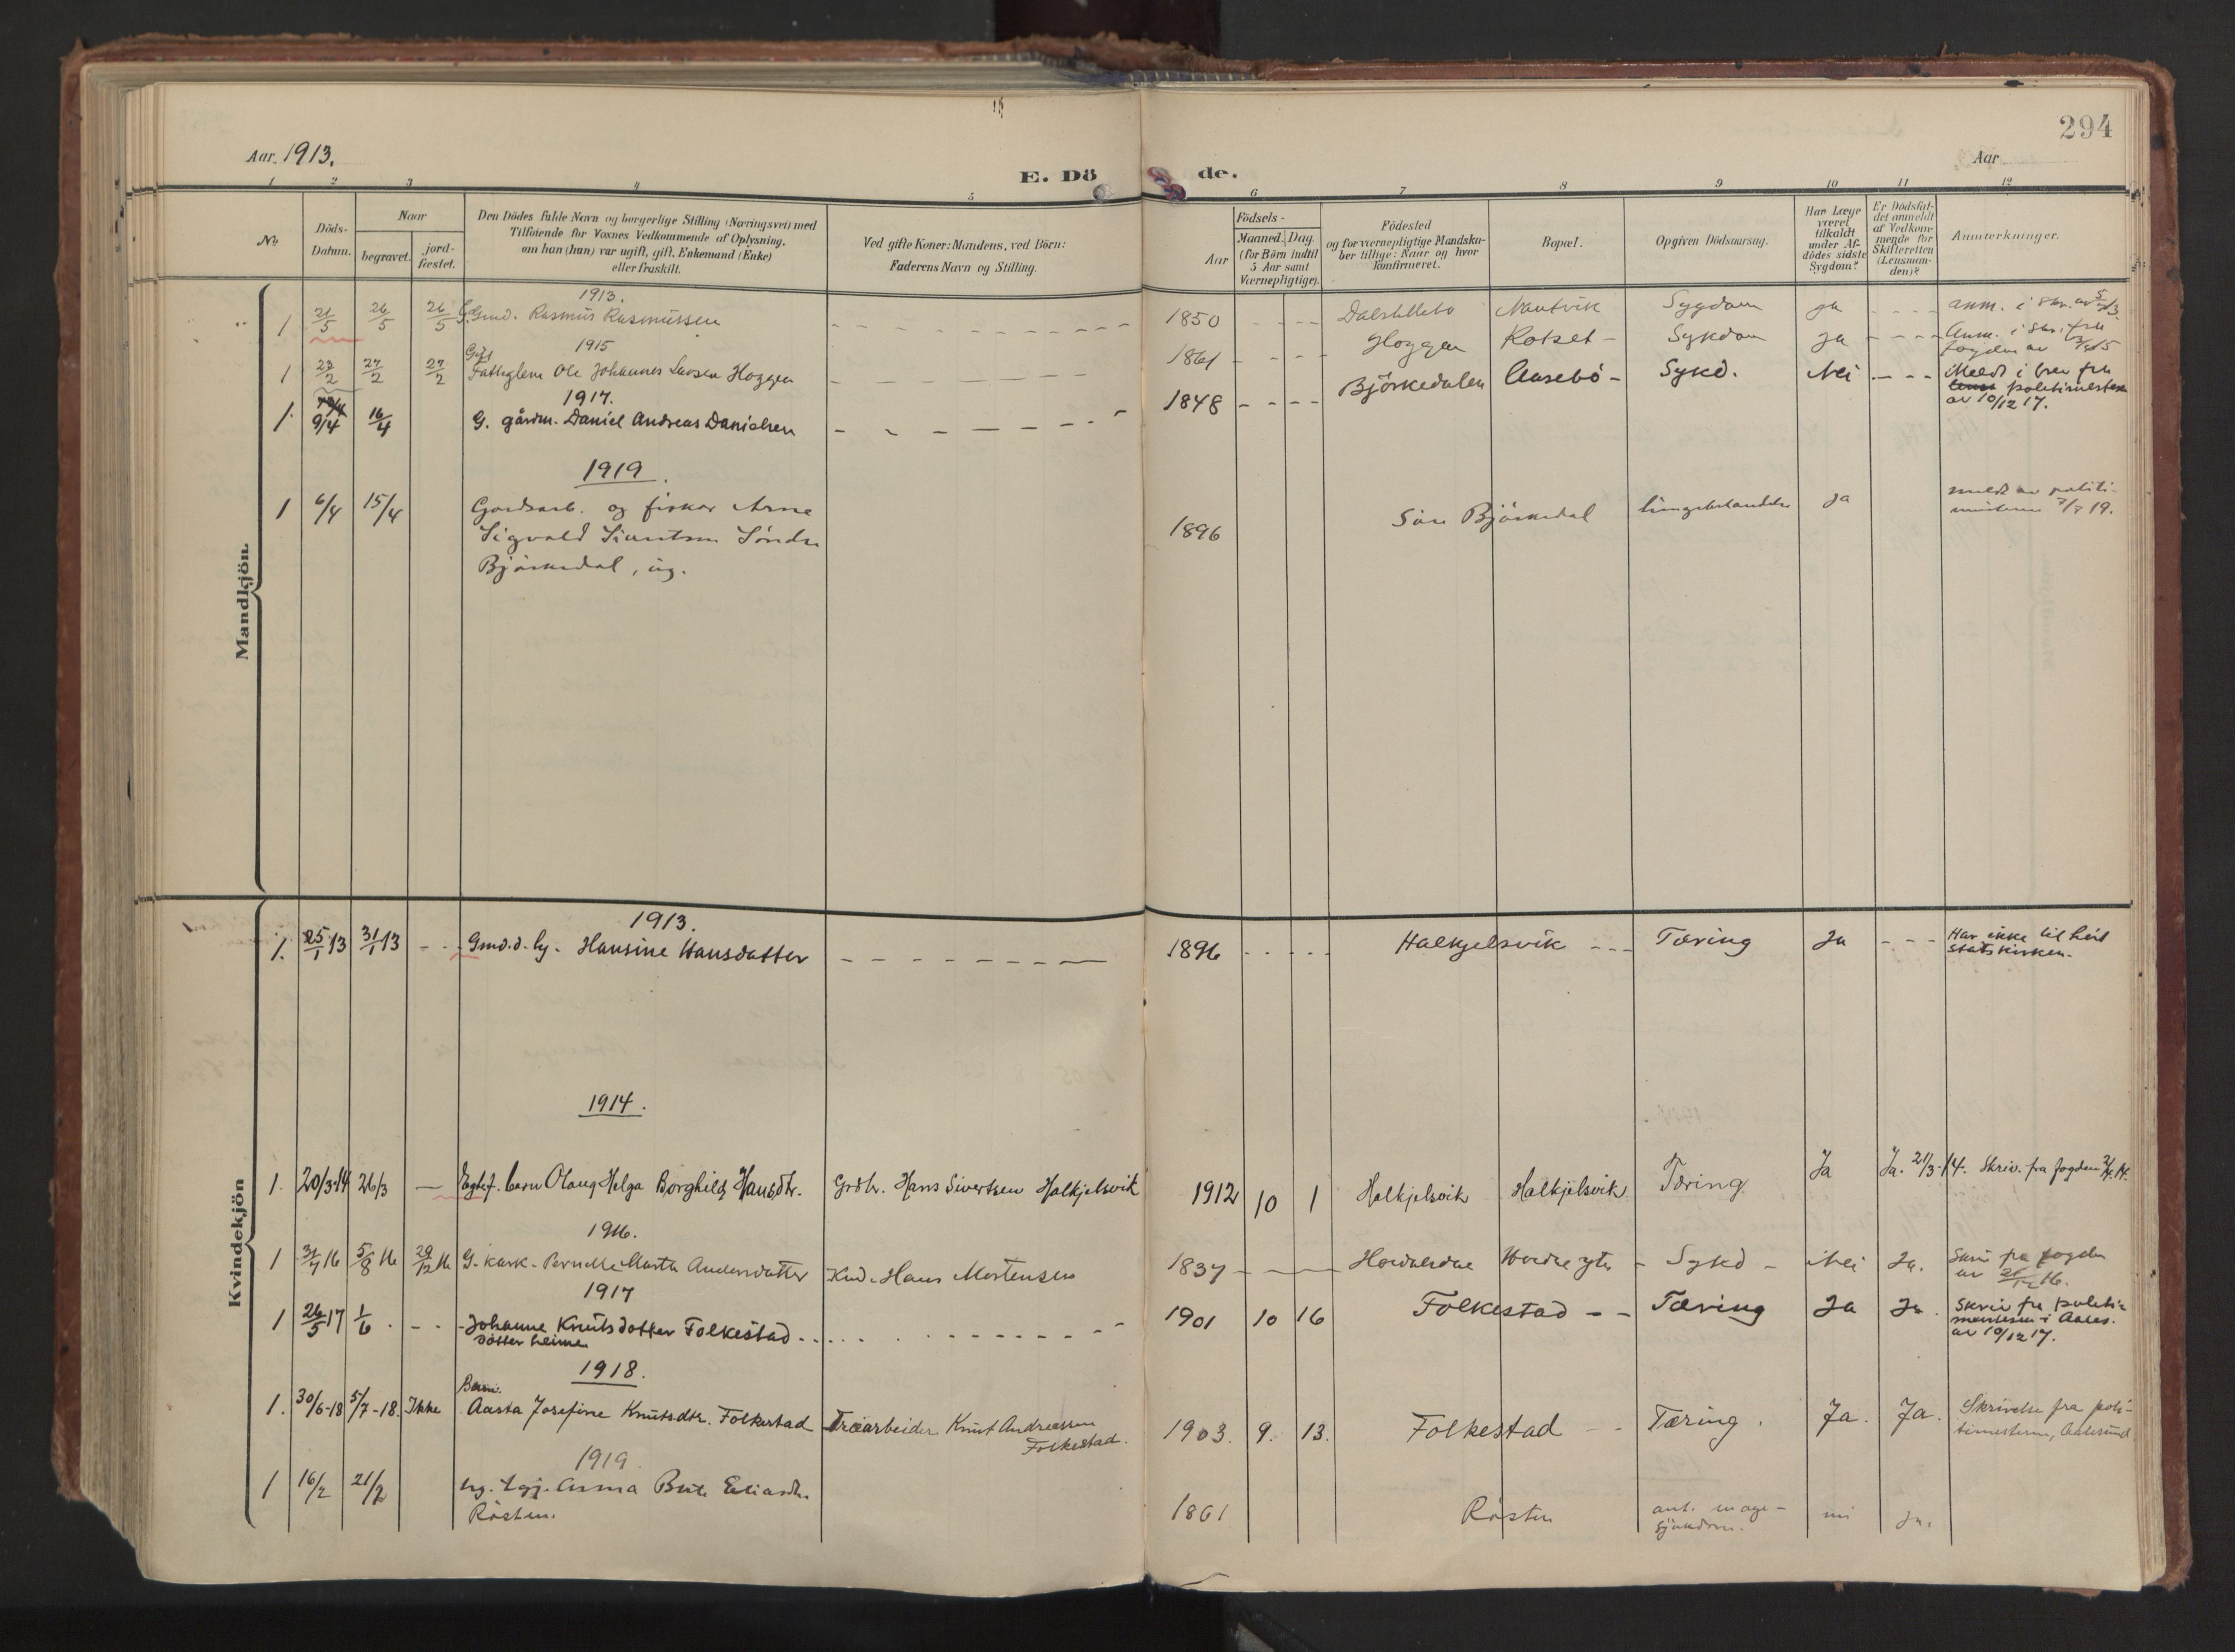 294
Aar 1913.
Aar
E. Dö
de.
1 2 3 4 5 6 7 8 9 10 11 12
No.
Döds-
Datum.
Naar
begravet.
jord-
fæstet.
Den Dödes fulde Navn og borgerlige Stilling (Næringsvei) med
Tilföiende for Voxnes Vedkommende af Oplysning,
om han (hun) var ugift, gift, Enkemand (Enke)
eller fraskilt.
Ved gifte Koner: Mandens, ved Börn:
Faderens Navn og Stilling.
Födsels-
Aar
Maaned. Dag.
(for Börn indtil
5 Aar samt
Værnepligtige).
Födested
og for værnepligtige Mandska-
ber tillige: Naar og hvor
konfirmeret.
Bopæl.
Opgiven Dödsaarsag.
Har Læge
været
tilkaldt
under Af-
dödes sidste
Sygdom?
Er Dödsfal-
det anmeldt
af Vedkom-
mende for
Skifteretten
(Lensman-
den)?
Anmærkninger.
Mandkjön.
1913.
1 21/5 26/5 26/5 Gmd. Rasmus Rasmussen 1850 Nautvik Sygdom ja anm. i skr. av
1915
Gift
1 22/2 27/2 27/2 Fattiglem Ole Johannes Larsen Hoggen 1861 Hoggen Rotset - Sykdom ja Anm. i skr. fra
fogden av
1917.
1. 9/4 16/4 G. gårdm. Daniel Andreas Danielsen 1848 Björkedalen Aasebö - Sykd. Nei Meldt i brev fra
politimesteren
av 10/12 17.
1919.
1 6/4 15/4 Gardsarb. og fisker Arne
Sigvald Sivertsen Söndre
Björkedal, ug.
1896 Söre Björkedal lungebetændelse ja meldt av politi-
mesteren 19.
Kvindekjön
1913.
1. 25/1 13 31/1 13 Gmd.d. ly. Hansine Hansdatter 1896 Halkjelsvik Tæring Ja Har ikke tilhört
statskirken.
1914.
1. 20/3-14 26/3 — Egtef. barn Olaug Helga Borghild Hansdtr. Grdbr. Hans Sivertsen Halkjelsvik 1912 10 1 Halkjelsvik Halkjelsvik Tæring Ja Ja. 21/3-14. Skriv. fra fogden
1916.
1 31/7 16 5/8 16 29/12 16 G. kark. Pernille Marta Andersdatter Kud. Hans Mortensen 1837 Sykd - Nei Ja. Skriv fra fogden
av 16.
1917
1 26/5 17 1/6 Johanne Knutsdotter Folkestad
dotter heime
1901 10 16 Folkestad Tæring Ja Ja. Skriv fra politi-
mesteren i Aales.
av 10/12 17.
1918.
Barn.
1. 30/6-18 5/7-18. Ikke Aasta Josefine Knutsdtr. Folkestad Træarbeider Knut Andreassen
Folkestad.
1903. 9. 13. Folkestad Tæring. Ja. Ja. Skrivelse fra poli-
timesteren, Aalesund
1919
1 16/2 21/2 ug. tgj. Anna Berte Eliasdtr.
Røsten.
1861 Røsten ant. mage-
sjukdom. nei ja.